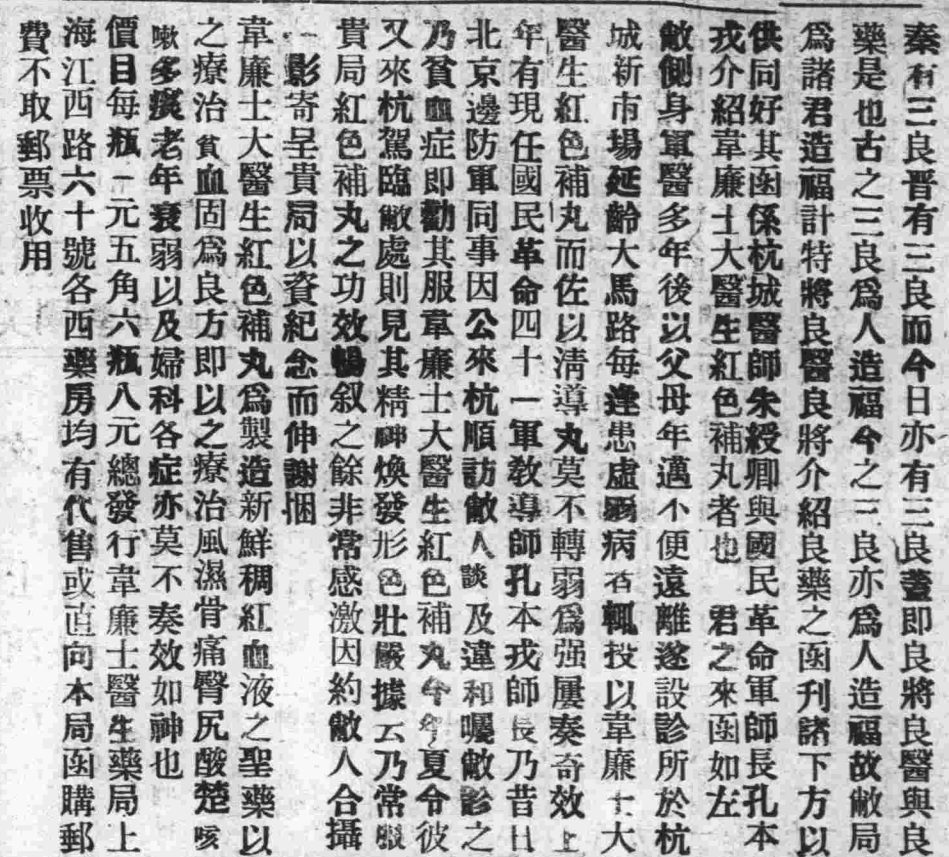 秦有三良晋有三良而今日亦有三良蓋即良將良醫與良
藥是也古之三良爲人造福今之三良亦爲人造福故敝局
爲諸君造福計特將良醫良將介紹良藥之函刊諸下方以
供同好其函係杭城醫師朱綬卿與國民革命軍師長孔本
戎介紹韋廉士大醫生紅色補丸者也 君之來函如左
敝側身軍醫多年後以父母年邁不便遠離遂設診所於杭
城新市場延齡大馬路每逢患虛弱病者輒投以韋廉士大
醫生紅色補丸而佐以淸導丸莫不轉弱爲强屢奏奇效上
年有現任國民革命四十一軍敎導師孔本戎師長乃昔日
北京邊防軍同事因公來杭順訪敝人談及違和囑敝診之
乃貧血症即勸其服韋廉士大醫生紅色補丸今年夏令彼
又來杭駕臨敝處則見其精神煥發形色壯嚴據云乃常服
貴局紅色補丸之功效暢叙之餘非常感激因約敝人合攝
一影寄呈貴局以資紀念而伸謝悃
韋廉士大醫生紅色補丸爲製造新鮮稠紅血液之聖藥以
之療治貧血固爲良方即以之療治風濕骨痛腎尻酸楚咳
嗽多痰老年衰弱以及婦科各症亦莫不奏效如神也
價目每瓶一元五角六瓶八元總發行韋廉士醫生藥局上
海江西路六十號各西藥房均有代售或直向本局函購郵
費不取郵票收用